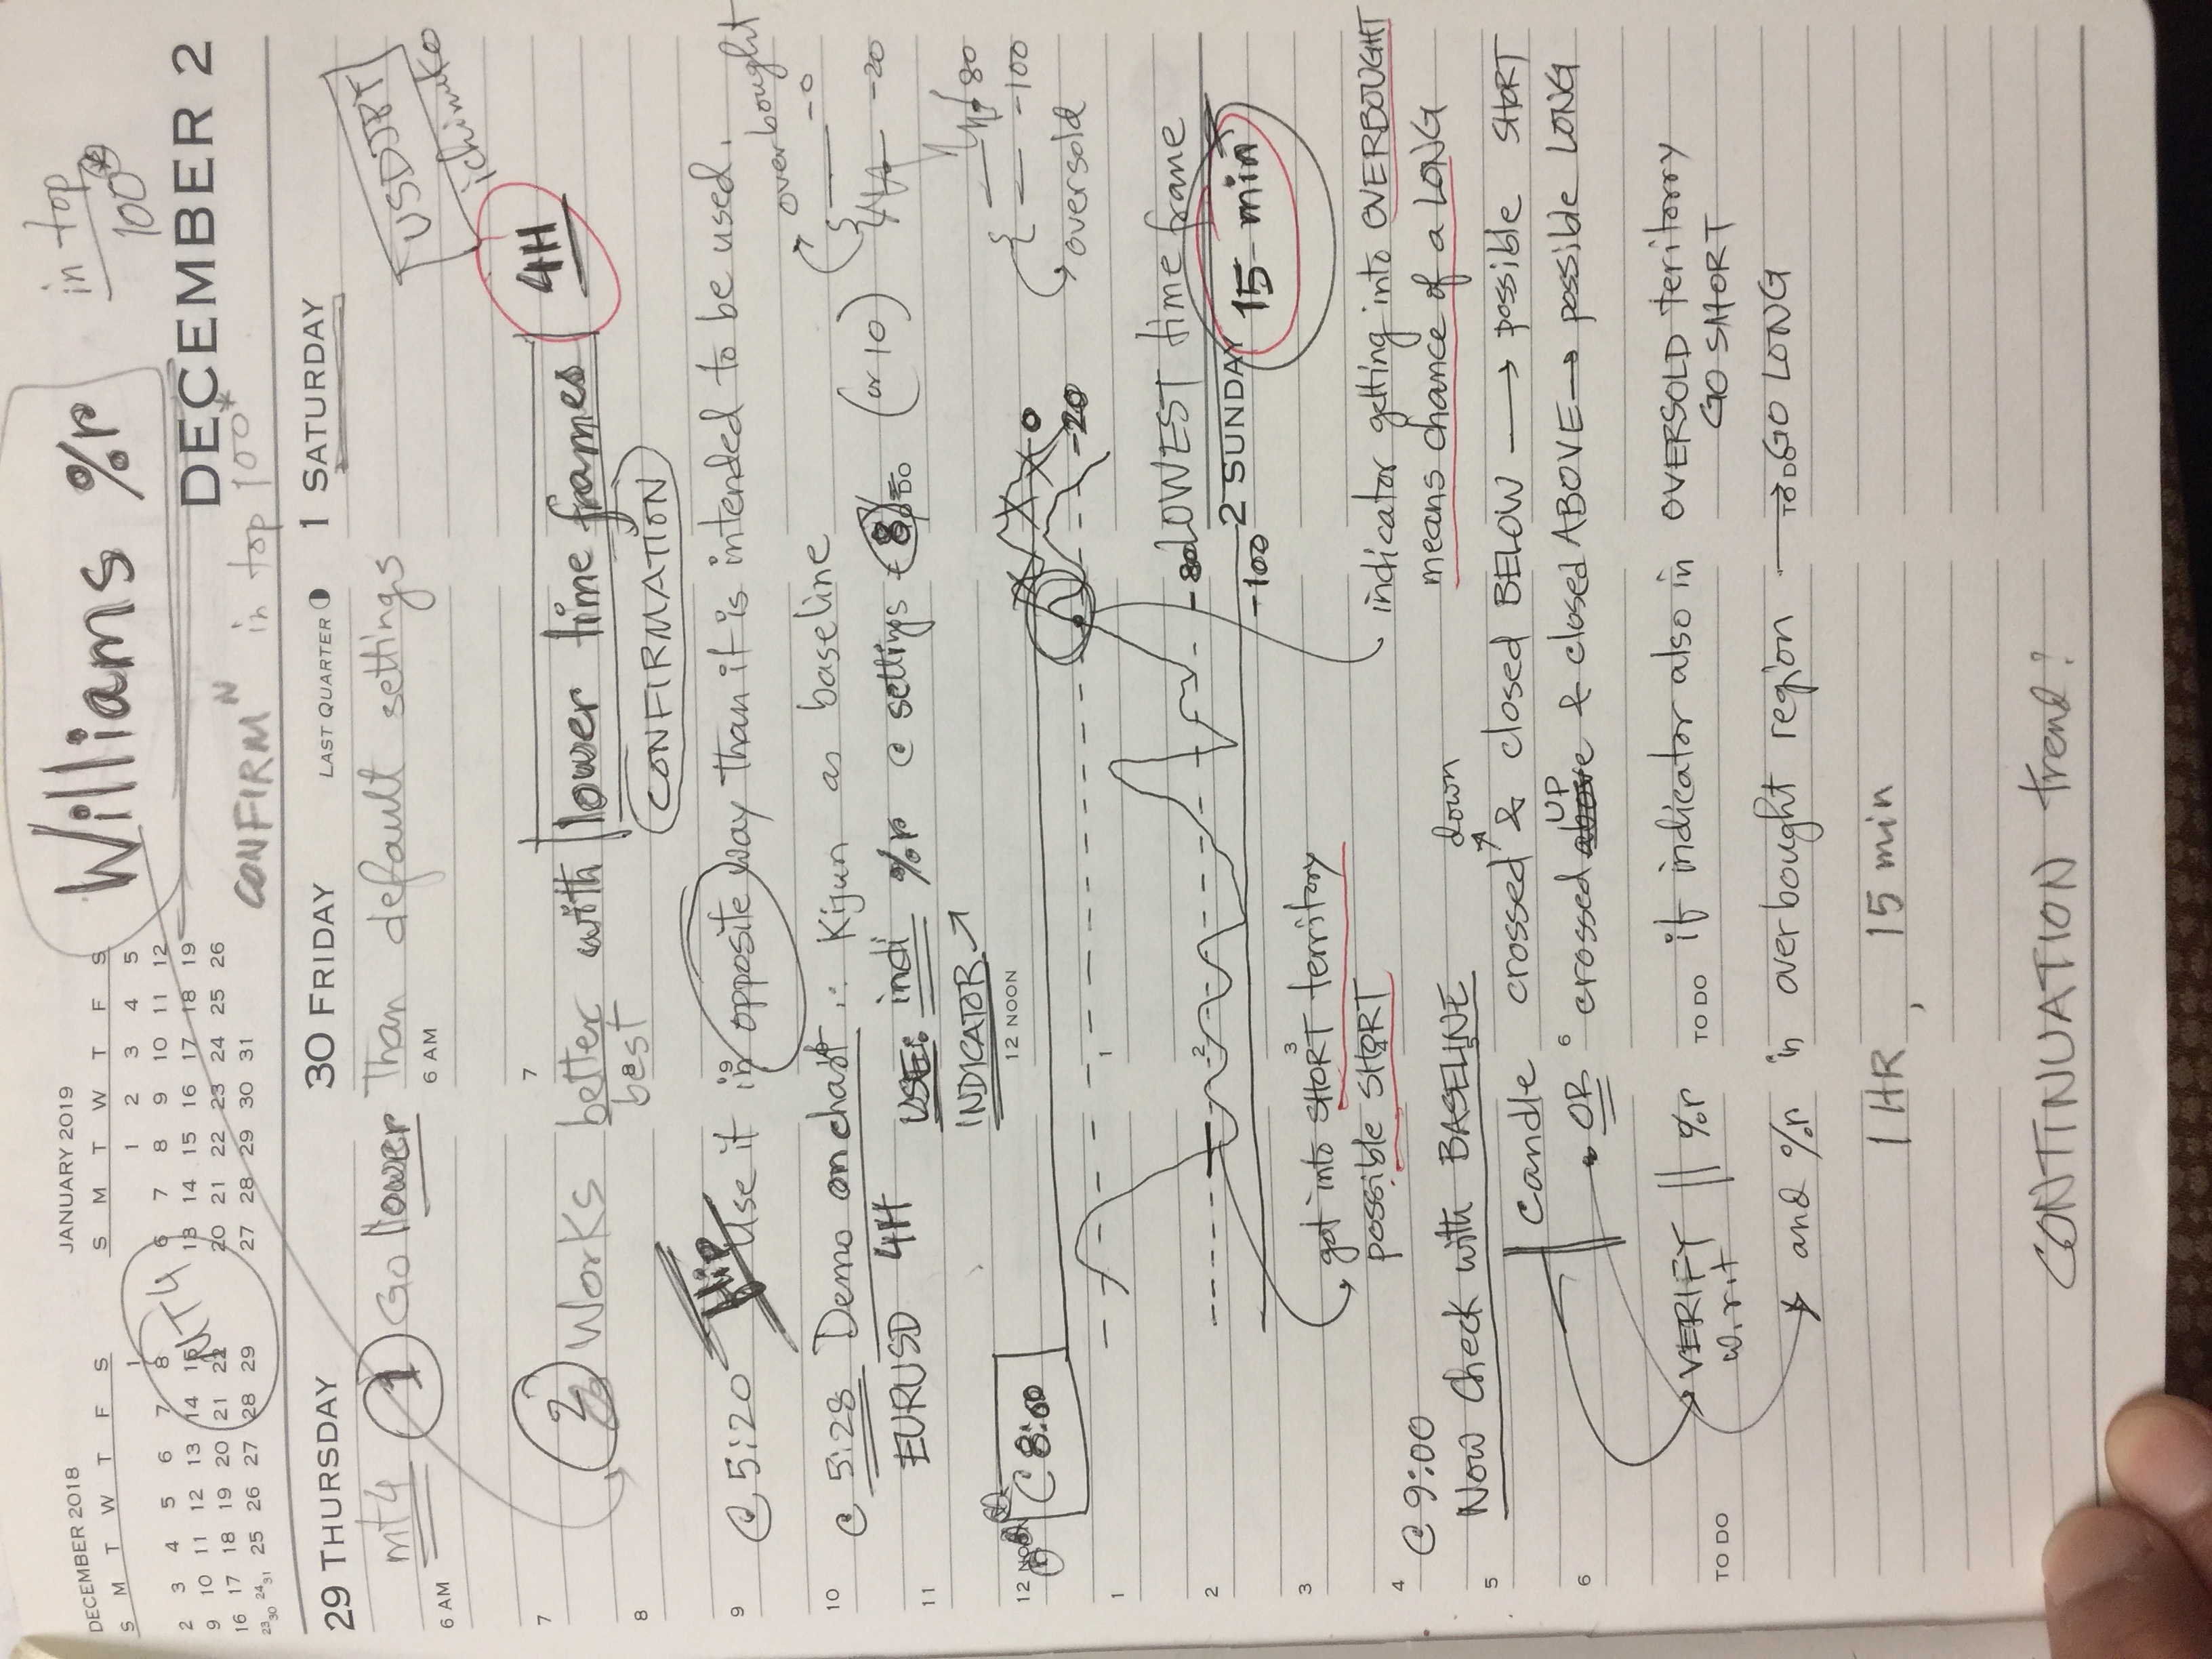 DECEMBER 2018
S M T W T F S
1
2 3 4 5 6 7 8
9 10 11 12 13 14 15
16 17 18 19 20 21 22
23 30 24 31 25 26 27 28 29
MT4
JANUARY 2019
S M T W T F S
1 2 3 4 5
6 7 8 9 10 11 12
13 14 15 16 17 18 19
20 21 22 23 24 25 26
27 28 29 30 31
Williams %r
in top
100*
DECEMBER 2
CONFIRM N in top 100*
29 THURSDAY
30 FRIDAY LAST QUARTER
1 SATURDAY
mt4 1 Go lower Than default settings
6 AM 6 AM
USDJPY
ichimuko
7 7
2 Works better with lower time frames 4H
8 8
best
CONFIRMATION
flip
9 @ 5:20 Use it in opposite way than it is intended to be used.
overbought
-0
10 @ 5:28 Demo on chart Kijun as baseline
-20
EURUSD 4H USE: indi %r @ settings 8 (or 10)
11
INDICATOR
-80
-100
oversold
12 NOON 12 NOON
@ 8:00
0
-20
1 1
-80 LOWEST time frane
2 2
2 SUNDAY
15 min
-100
3 3
got into SHORT territory
possible SHORT
indicator getting into OVERBOUGHT
means chance of a LONG
4
@ 9:00
Now check with BASELINE
down
5
candle crossed & closed BELOW → possible SHORT
UP
6 OR 6 crossed above & closed ABOVE → possible LONG
VERIFY %r if indicator also in OVERSOLD teritorry
w.r.t GO SHORT
TO DO TO DO
and %r in overbought region → GO LONG
TO DO
1 HR , 15 min
CONTINUATION trend?